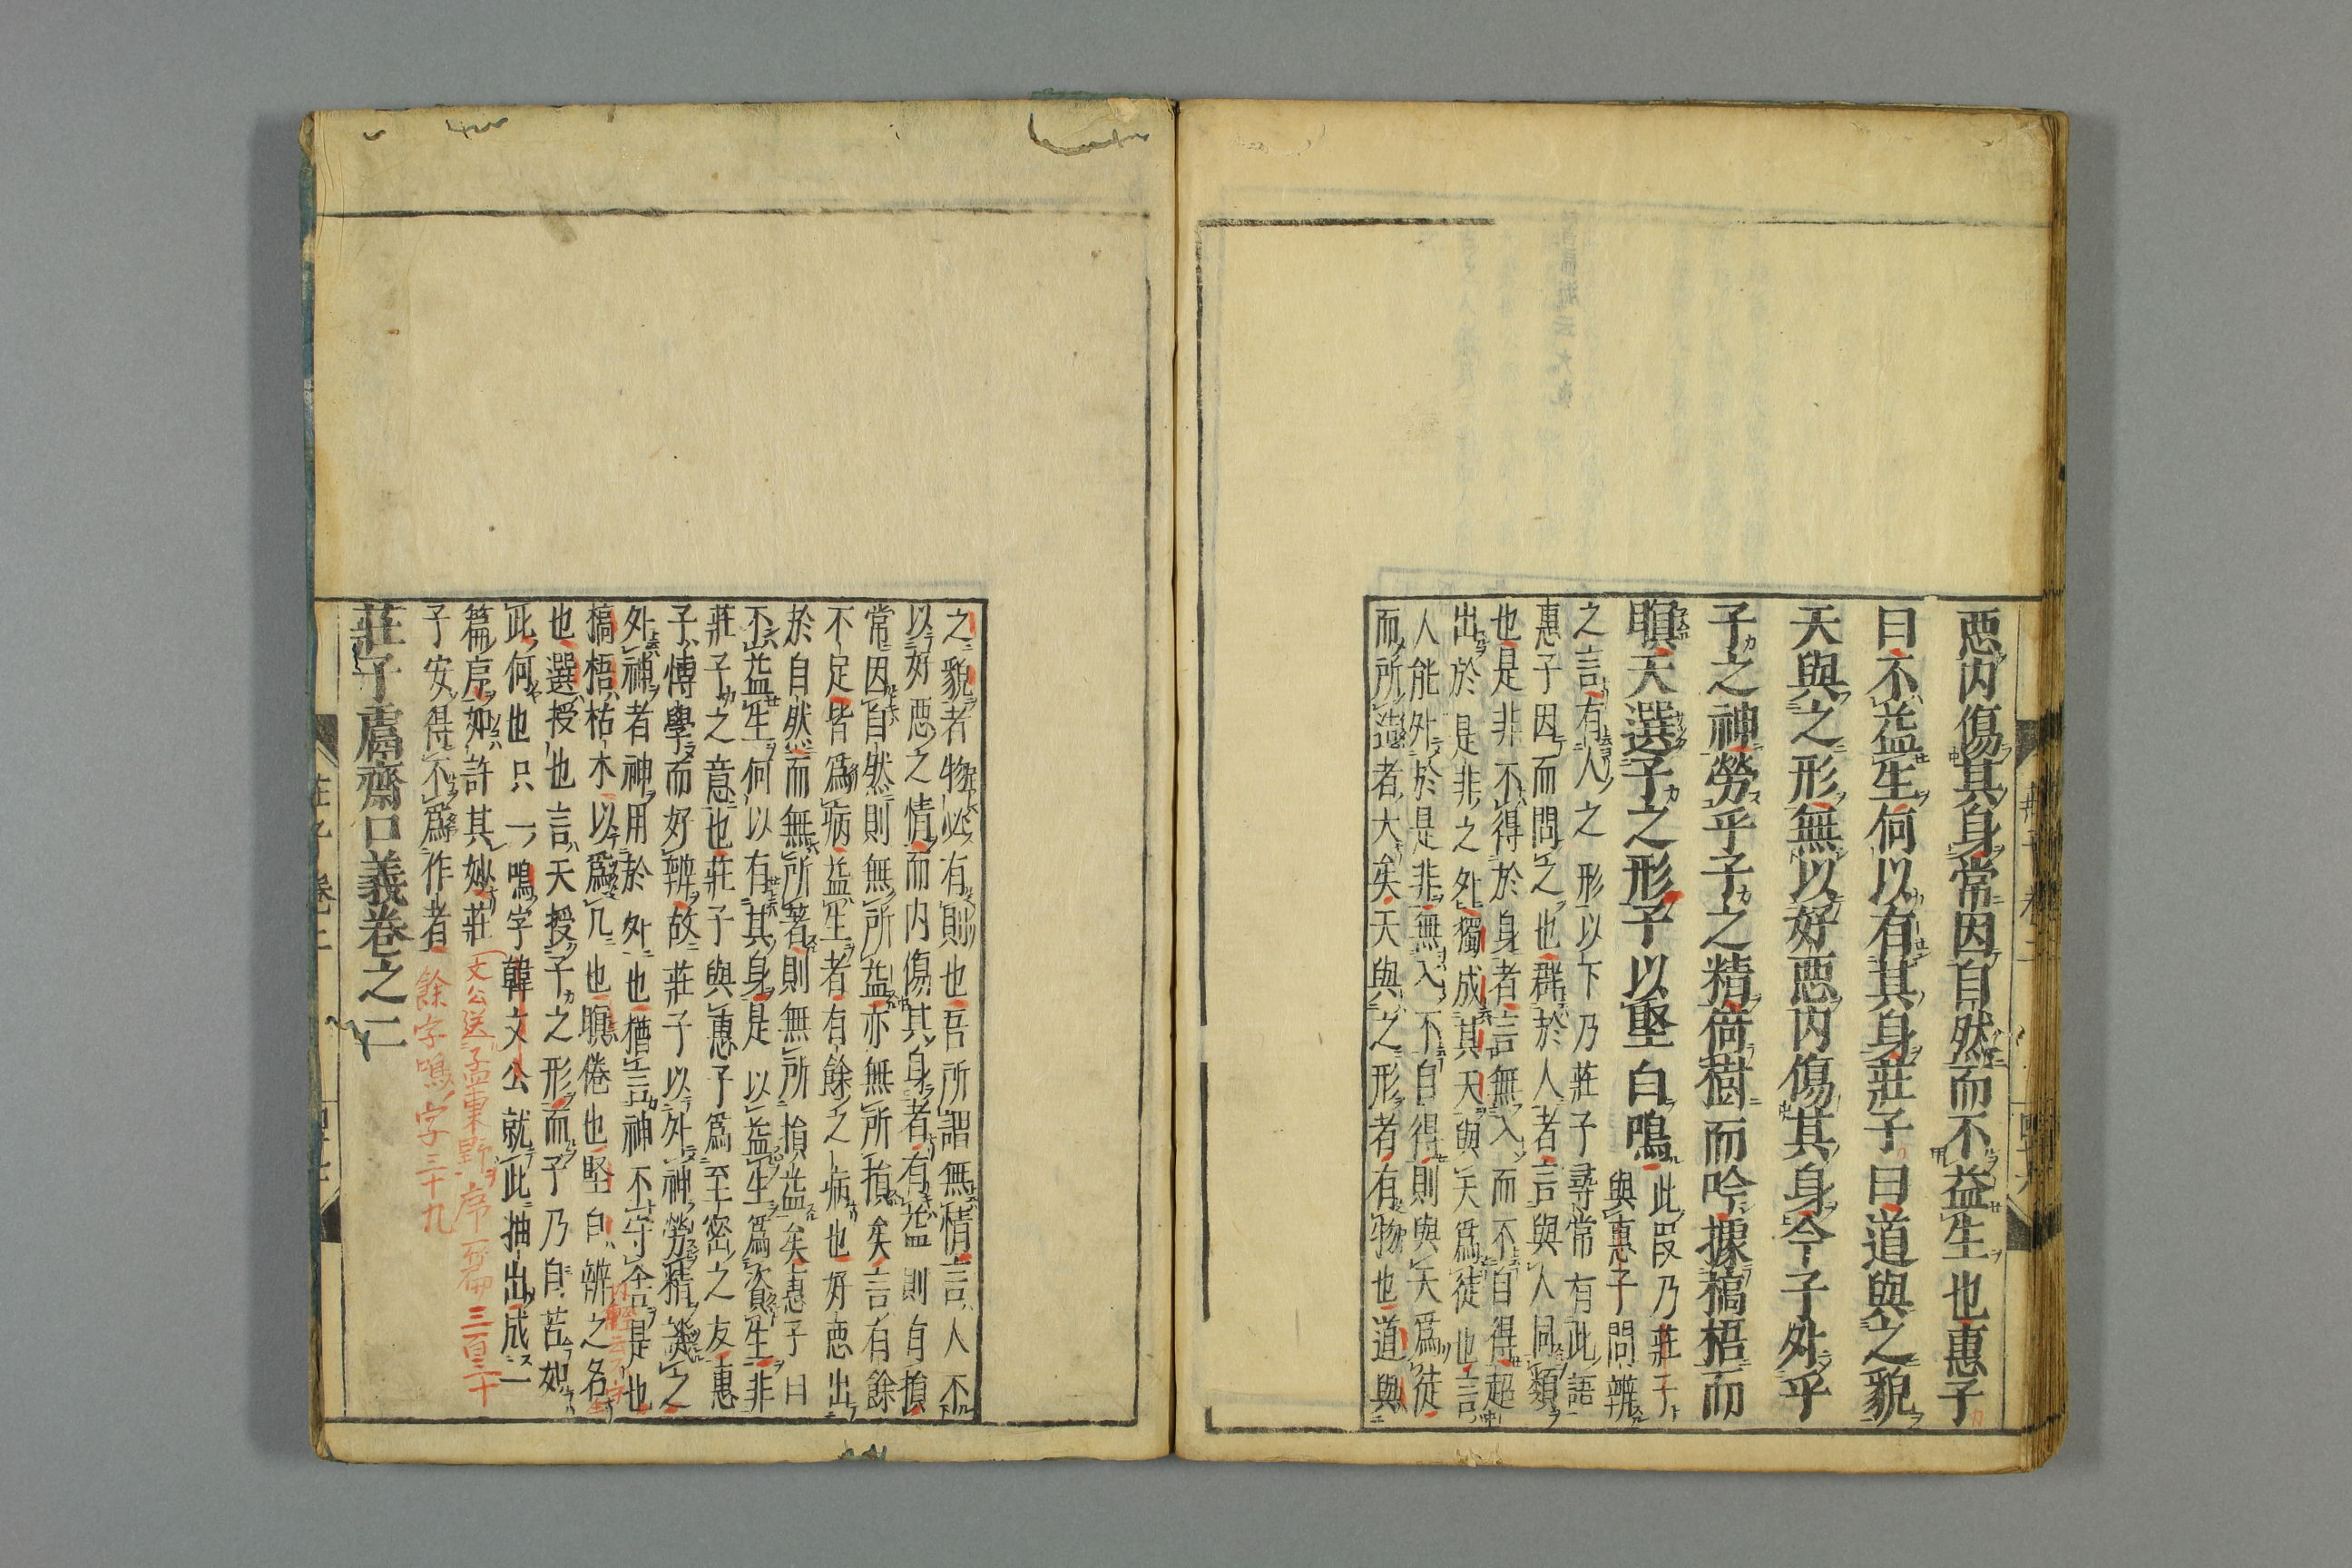 惡内傷其身常因自然而不益生也惠子
曰不益生何以有其身莊子曰道與之貌
天與之形無以好惡内傷其身今子外乎
子之神勞乎子之精倚樹而吟據槁梧而
瞑天選子之形子以堅白鳴此段乃莊子
與惠子問辨
之言有人之形以下乃莊子尋常有此語
惠子因而問之也群於人者言與人同類
也是非不得於身者言無入而不自得超
出於是非之外獨成其天與天爲徒也言
人能外於是非無入不自得則與天爲徒
而所造者大矣天與之形者有物也道與
之貌者物必有則也吾所謂無情言人不
以好惡之情而内傷其身者有益則有損
常因自然則無所益亦無所損矣言有餘
不足皆爲病益生者有餘之病也好惡出
於自然而無所著則無所損益矣惠子曰
不益生何以有其身是以益生爲資生非
莊子之意也莊子與惠子爲至密之友惠
子博學而好辨故莊子以外神勞精譏之
外神者神用於外也槽言神不守舍是也
槁梧枯木以爲几也瞑倦也堅白辨之名
也選授也言天授子之形而子乃自苦如
此何也只一鳴字韓文公就此抽出成一
篇序如許其妙莊
子安得不爲作者
文公送孟東野序一篇三百三十
餘字鳴字三十九
莊子鬳齋口義卷之二
莊子 卷二